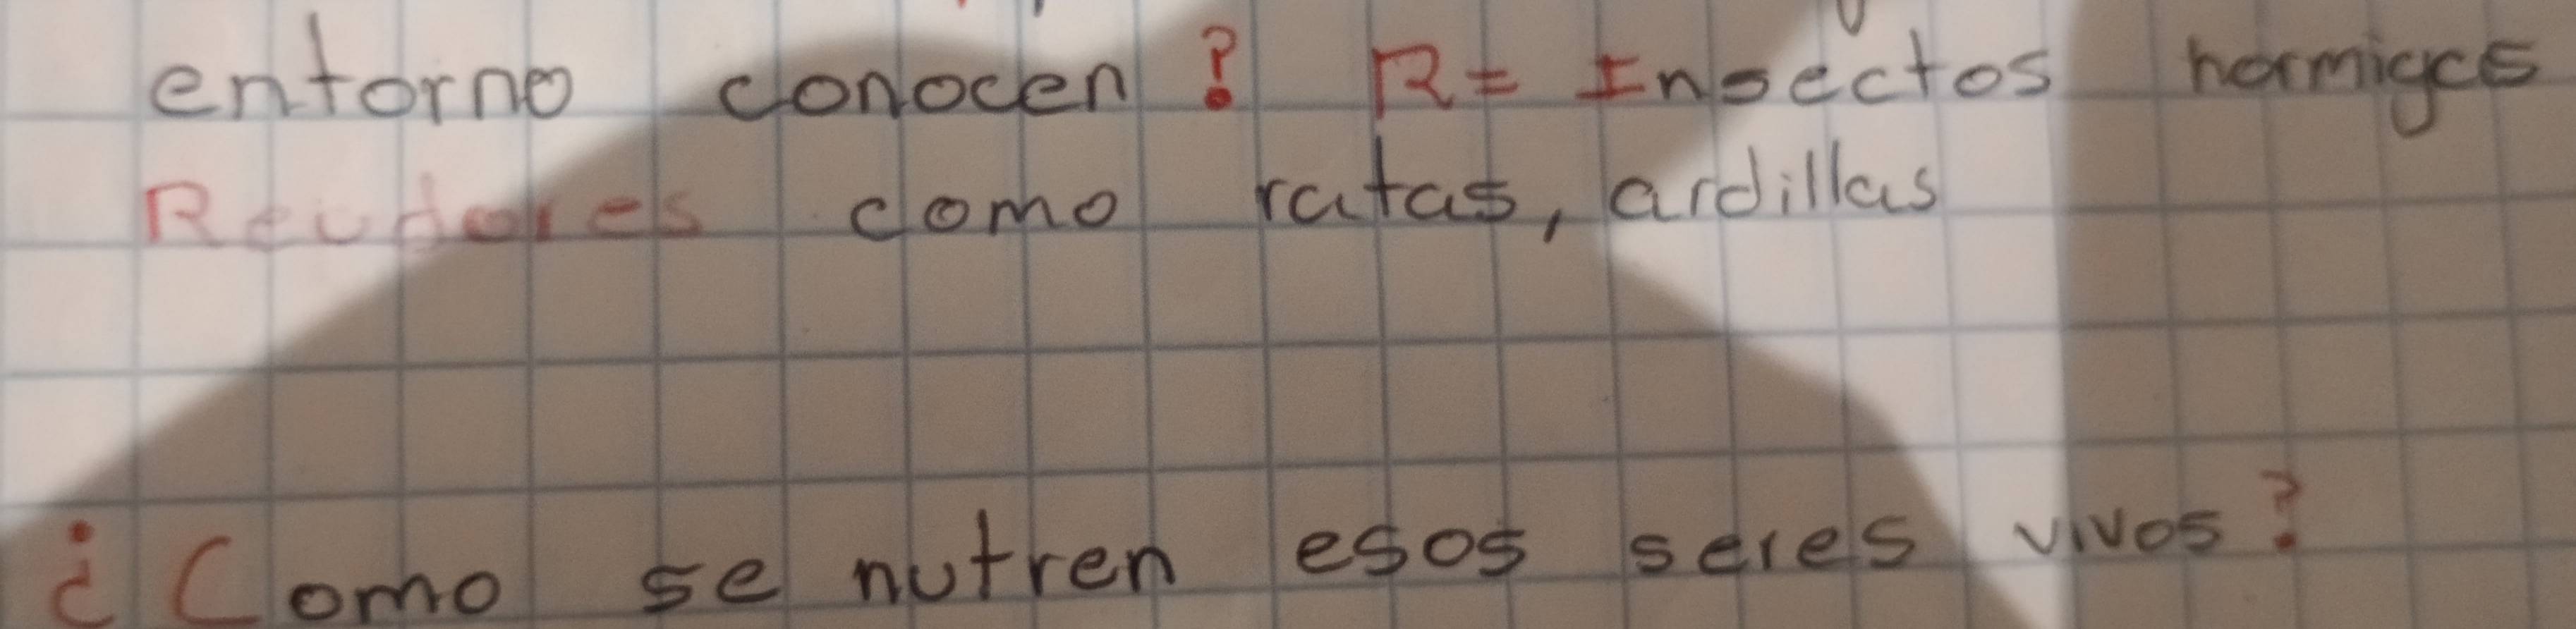 entorno conocen? R= Insectos hormigas
Reudores como ratas, ardillas
¿Como se nutren esos seres vivos?